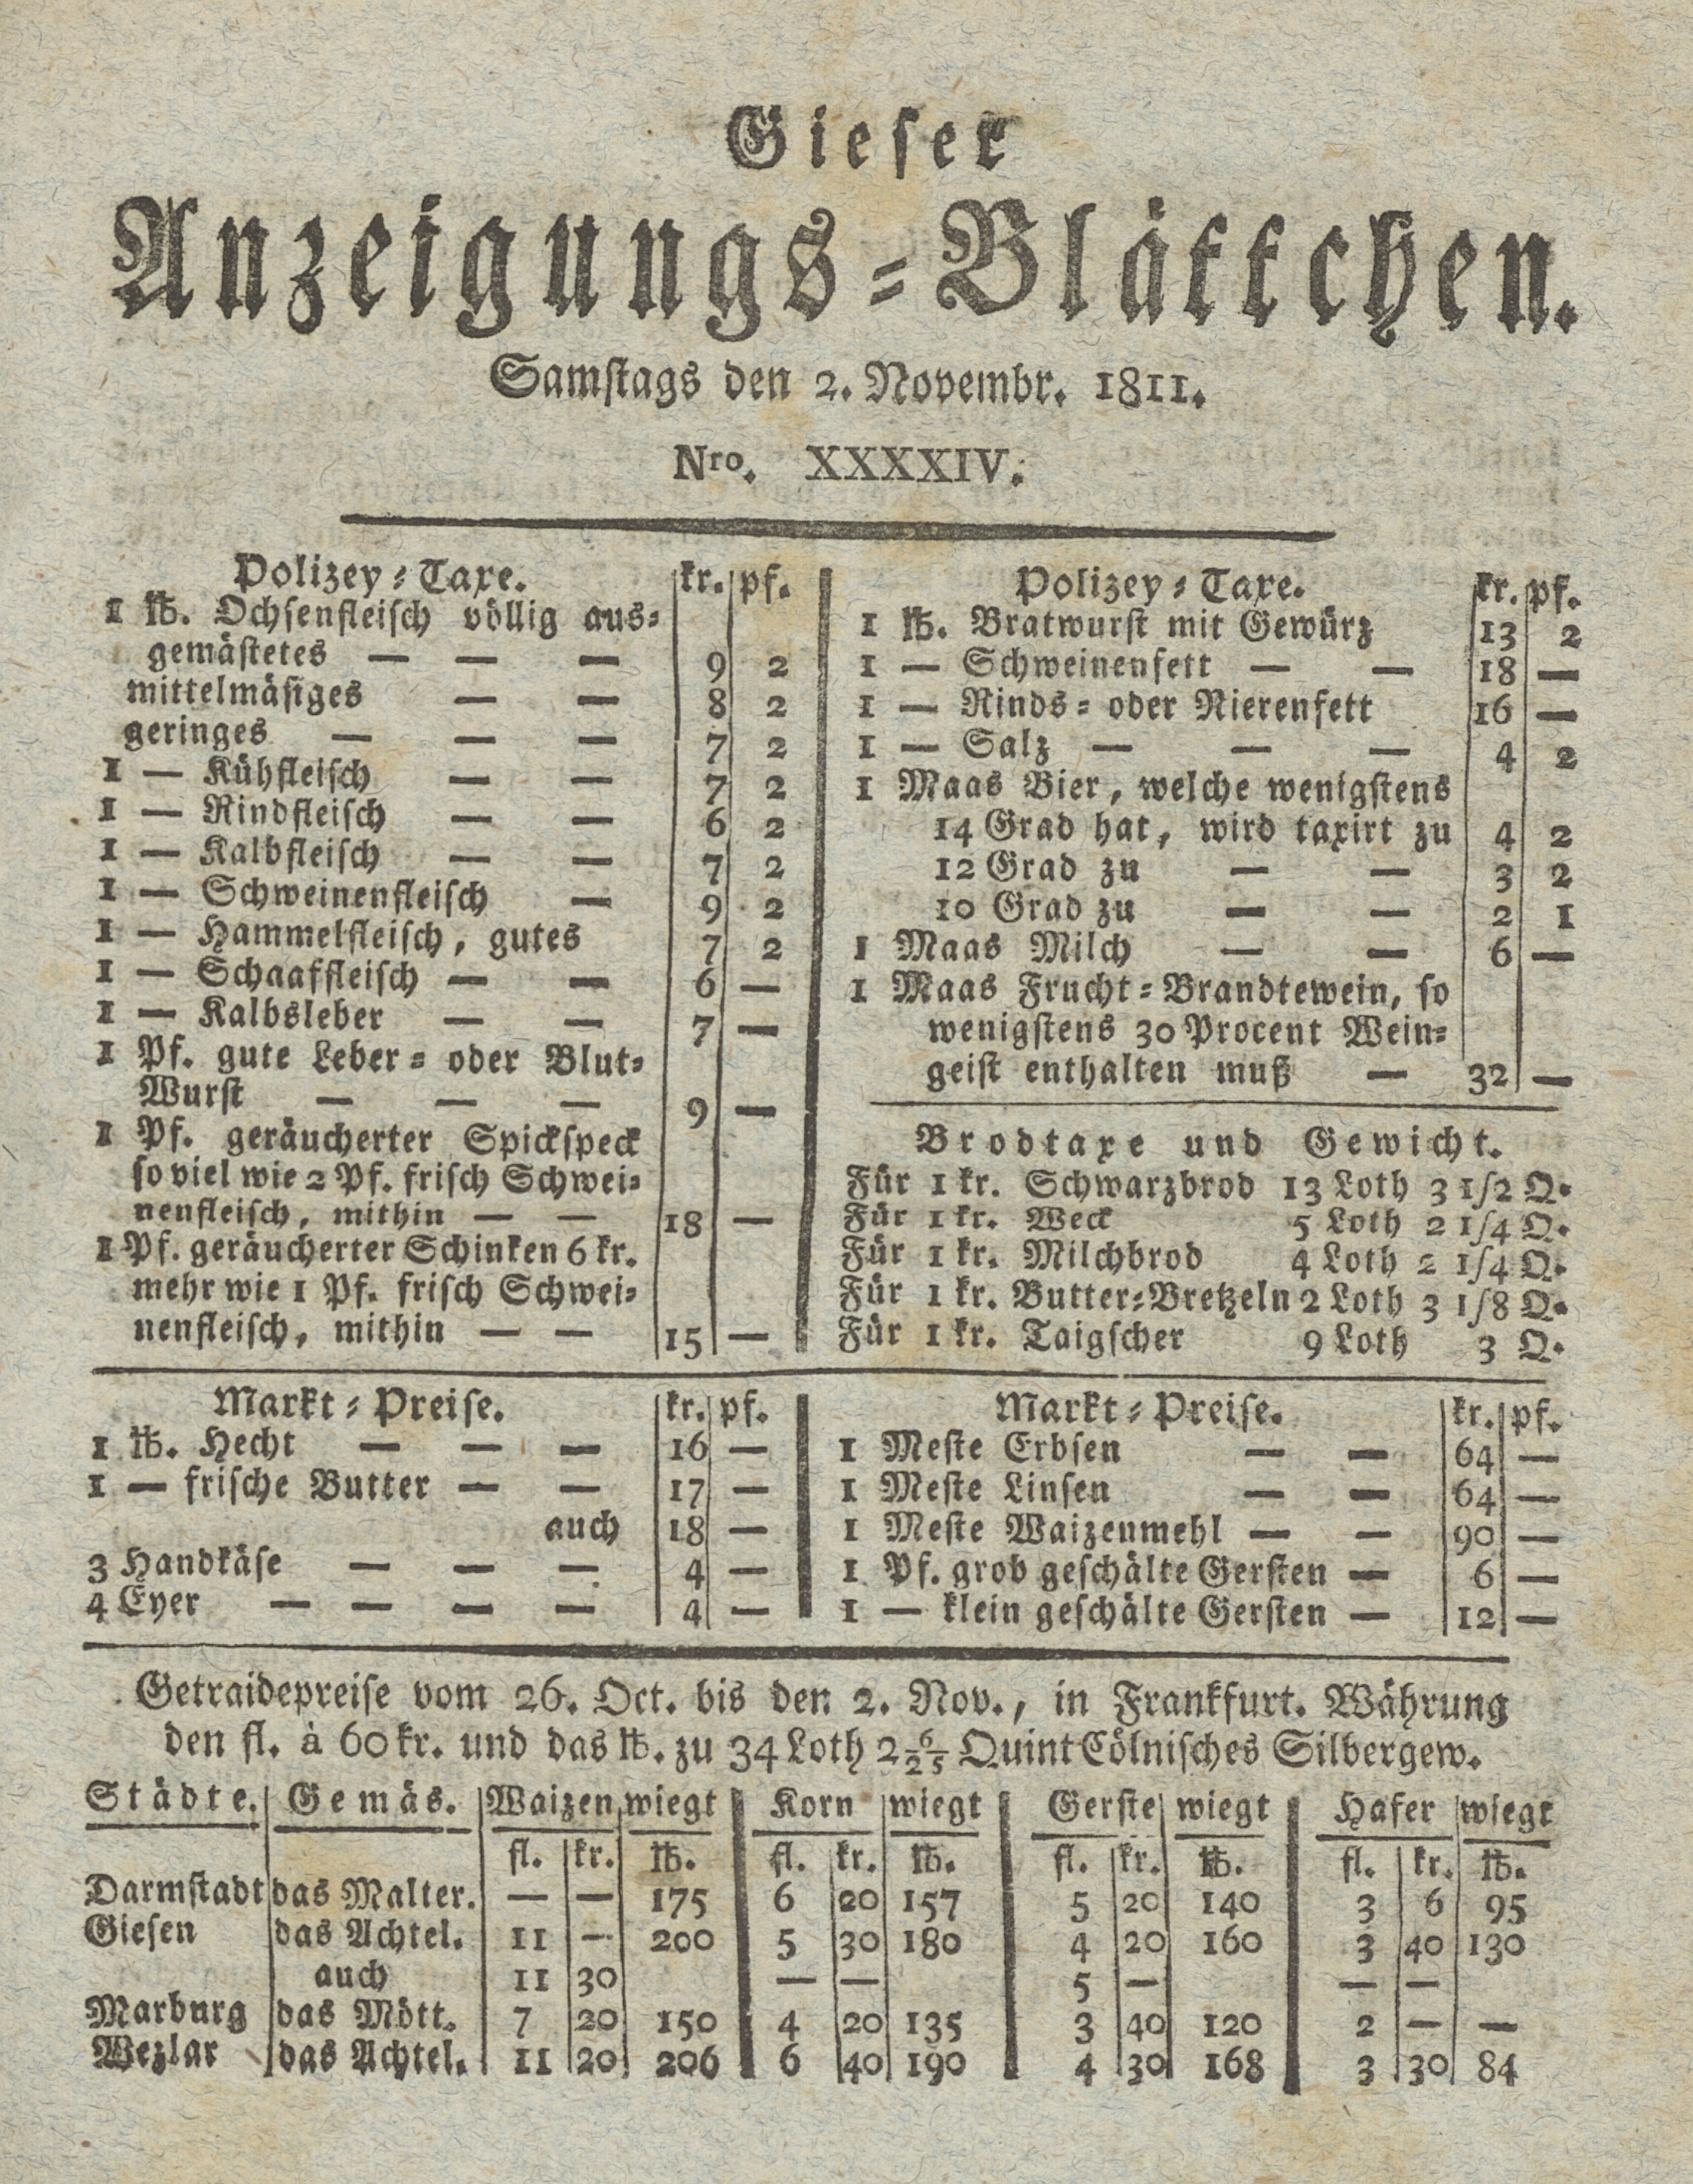 Gieser
Anzeigungs-Blättchen.
Samstags den 2. Novembr. 1811.
Nro. XXXXIV.
Polizey-Taxe. kr. pf.
1 ℔. Ochsenfleisch völlig aus-
gemästetes — — — 9 2
mittelmäsiges — — 8 2
geringes — — — 7 2
1 — Kühfleisch — — 7 2
1 — Rindfleisch — — 6 2
1 — Kalbfleisch — — 7 2
1 — Schweinenfleisch — 9 2
1 — Hammelfleisch, gutes 7 2
1 — Schaaffleisch — — 6 —
1 — Kalbsleber — — 7 —
1 Pf. gute Leber- oder Blut-
Wurst — — — 9 —
1 Pf. geräucherter Spickspeck
so viel wie 2 Pf. frisch Schwei-
nenfleisch, mithin — — 18 —
1 Pf. geräucherter Schinken 6 kr.
mehr wie 1 Pf. frisch Schwei-
nenfleisch, mithin — — 15 —
Polizey-Taxe. kr. pf.
1 ℔. Bratwurst mit Gewürz 13 2
1 — Schweinenfett — — 18 —
1 — Rinds- oder Nierenfett 16 —
1 — Salz — — — 4 2
1 Maas Bier, welche wenigstens
14 Grad hat, wird taxirt zu 4 2
12 Grad zu — — 3 2
10 Grad zu — — 2 1
1 Maas Milch — — 6 —
1 Maas Frucht-Brandtewein, so
wenigstens 30 Procent Wein-
geist enthalten muß — 32 —
Brodtaxe und Gewicht.
Für 1 kr. Schwarzbrod 13 Loth 3 1/2 Q.
Für 1 kr. Weck 5 Loth 2 1/4 Q.
Für 1 kr. Milchbrod 4 Loth 2 1/4 Q.
Für 1 kr. Butter-Bretzeln 2 Loth 3 1/8 Q.
Für 1 kr. Taigscher 9 Loth 3 Q.
Markt-Preise. kr. pf.
1 ℔. Hecht — — — 16 —
1 — frische Butter — — 17 —
auch 18 —
3 Handkäse — — — 4 —
4 Eyer — — — — 4 —
Markt-Preise. kr. pf.
1 Meste Erbsen — — 64 —
1 Meste Linsen — — 64 —
1 Meste Waizenmehl — — 90 —
1 Pf. grob geschälte Gersten — 6 —
1 — klein geschälte Gersten — 12 —
Getraidepreise vom 26. Oct. bis den 2. Nov., in Frankfurt. Währung
den fl. à 60 kr. und das ℔. zu 34 Loth 2 6/25 Quint Cölnisches Silbergew.
Städte. Gemäs. Waizen wiegt Korn wiegt Gerste wiegt Hafer wiegt
fl. kr. ℔. fl. kr. ℔. fl. kr. ℔. fl. kr. ℔.
Darmstadt das Malter. — — 175 6 20 157 5 20 140 3 6 95
Giesen das Achtel. 11 — 200 5 30 180 4 20 160 3 40 130
auch 11 30 — — 5 — — —
Marburg das Mött. 7 20 150 4 20 135 3 40 120 2 — —
Wezlar das Achtel. 11 20 206 6 40 190 4 30 168 3 30 84